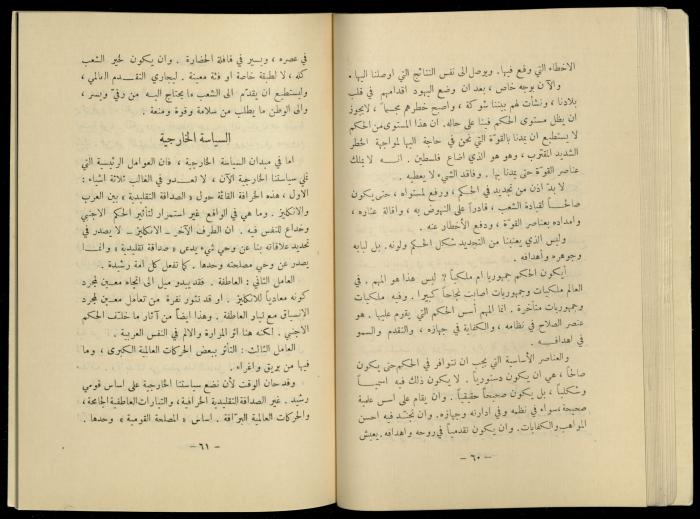 الاخطاء التي وقع فيها. ويوصل الى نفس النتائج التي اوصلنا اليها.
والآن بوجه خاص، بعد ان وضع اليهود اقدامهم في قلب
بلادنا، ونشأت لهم بيننا شوكة، واصبح خطرهم مجسماً، لايجوز
ان يظل مستوى الحكم فينا على حاله. ان هذا المستوى من الحكم
لا يستطيع ان يمدنا بالقوة التي نحن في حاجة اليها لمواجهة الخطر
الشديد المقترب، وهو هو الذي اضاع فلسطين. انه لا يملك
عناصر القوة حتى يمدنا بها. وفاقد الشيء لا يعطيه.
لا بد اذن من تجديد في الحكم، ورفع لمستواه، حتى يكون
صالحاً لقيادة الشعب، قادراً على النهوض به، واقالة عثاره،
وامداده بعناصر القوة، ودفع الأخطار عنه.
وليس الذي يعنينا من التجديد شكل الحكم ولونه. بل لبابه
وجوهره وأهدافه.
أيكون الحكم جمهوريا ام ملكياً؟ ليس هذا هو المهم. في
العالم ملكيات وجمهوريات اصابت نجاحاً كبيرا. وفيه ملكيات
وجمهوريات متأخرة. انما المهم أسس الحكم التي يقوم عليها. هو
عنصر الصلاح في نظامه، والكفاية في جهازه، والتقدم والسمو
في اهدافه.
والعناصر الأساسية التي يجب ان تتوافر في الحكم حتى يكون
صالحاً، هي ان يكون دستورياً. لا يكون ذلك فيه اسمياً
وشكلياً، بل يكون صحيحاً حقيقياً. وان يقام على أسس علمية
صحيحة، سواء في نظمه وفي ادارته وجهازه. وان تجند فيه احسن
المواهب والكفايات. وان يكون تقدمياً في روحه واهدافه. يعيش
- ٦٠ -
في عصره، ويسير في قافلة الحضارة. وان يكون لخير الشعب
كله، لا لطبقة خاصة او فئة معينة. ليجاري التقدم العالمي،
وليستطيع ان يقدم الى الشعب ما يحتاج اليه من رقي ويسر،
والى الوطن ما يطلب من سلامة وقوة ومنعة.
السياسة الخارجية
اما في ميدان السياسة الخارجية، فان العوامل الرئيسية التي
تملي سياستنا الخارجية الآن، لا تعدو في الغالب ثلاثة اشياء:
الاول، هذه الخرافة القائمة حول «الصداقة التقليدية» بين العرب
والانكليز. وما هي في الواقع غير استمرار لتأثير الحكم الاجنبي
وخداع للنفس فيه. ان الطرف الآخر - الانكليز - لا يصدر في
تحديد علاقاته بنا عن وحي شيء يدعى «صداقة تقليدية» وانما
يصدر عن وحي مصلحته وحدها. كما تفعل كل امة رشيدة.
العامل الثاني: العاطفة. فقد يبدو ميل الى اتجاه معين لمجرد
كونه معادياً للانكليز. او قد تثور نفرة من تعامل معين لمجرد
الانسياق مع تيار العاطفة. وهذا ايضاً من آثار ما خلف الحكم
الاجنبي. لكنه هنا اثر المرارة والالم في النفس العربية.
العامل الثالث: التأثر ببعض الحركات العالمية الكبرى، وما
فيها من بريق واغراء.
وقد حان الوقت لأن نضع سياستنا الخارجية على اساس قومي
رشيد. غير الصداقة التقليدية الخرافية، والتيارات العاطفية الجامحة،
والحركات العالمية البراقة. اساس «المصلحة القومية» وحدها.
- ٦١ -